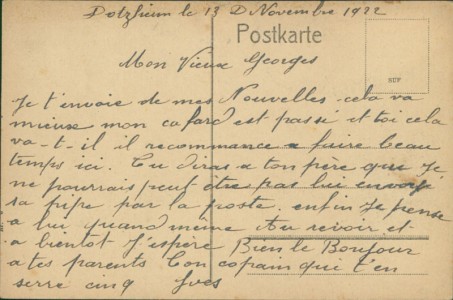 Dotzheim le 13 D Novembre 1922
Postkarte
Mon Vieux Georges
Je t'envoie de mes Nouvelles. cela va
mieux mon cafard est passé et toi cela
va-t-il il recommance a faire beau
temps ici. Tu diras a ton père que Je
ne pourrais peut êtres pas lui envoyé
sa pipe par la poste. enfin Je pense
a lui quand même Au revoir et
a bientot J'espère Bien le Bonjour
a tes parents Ton copain qui t'en
serre cinq Yves